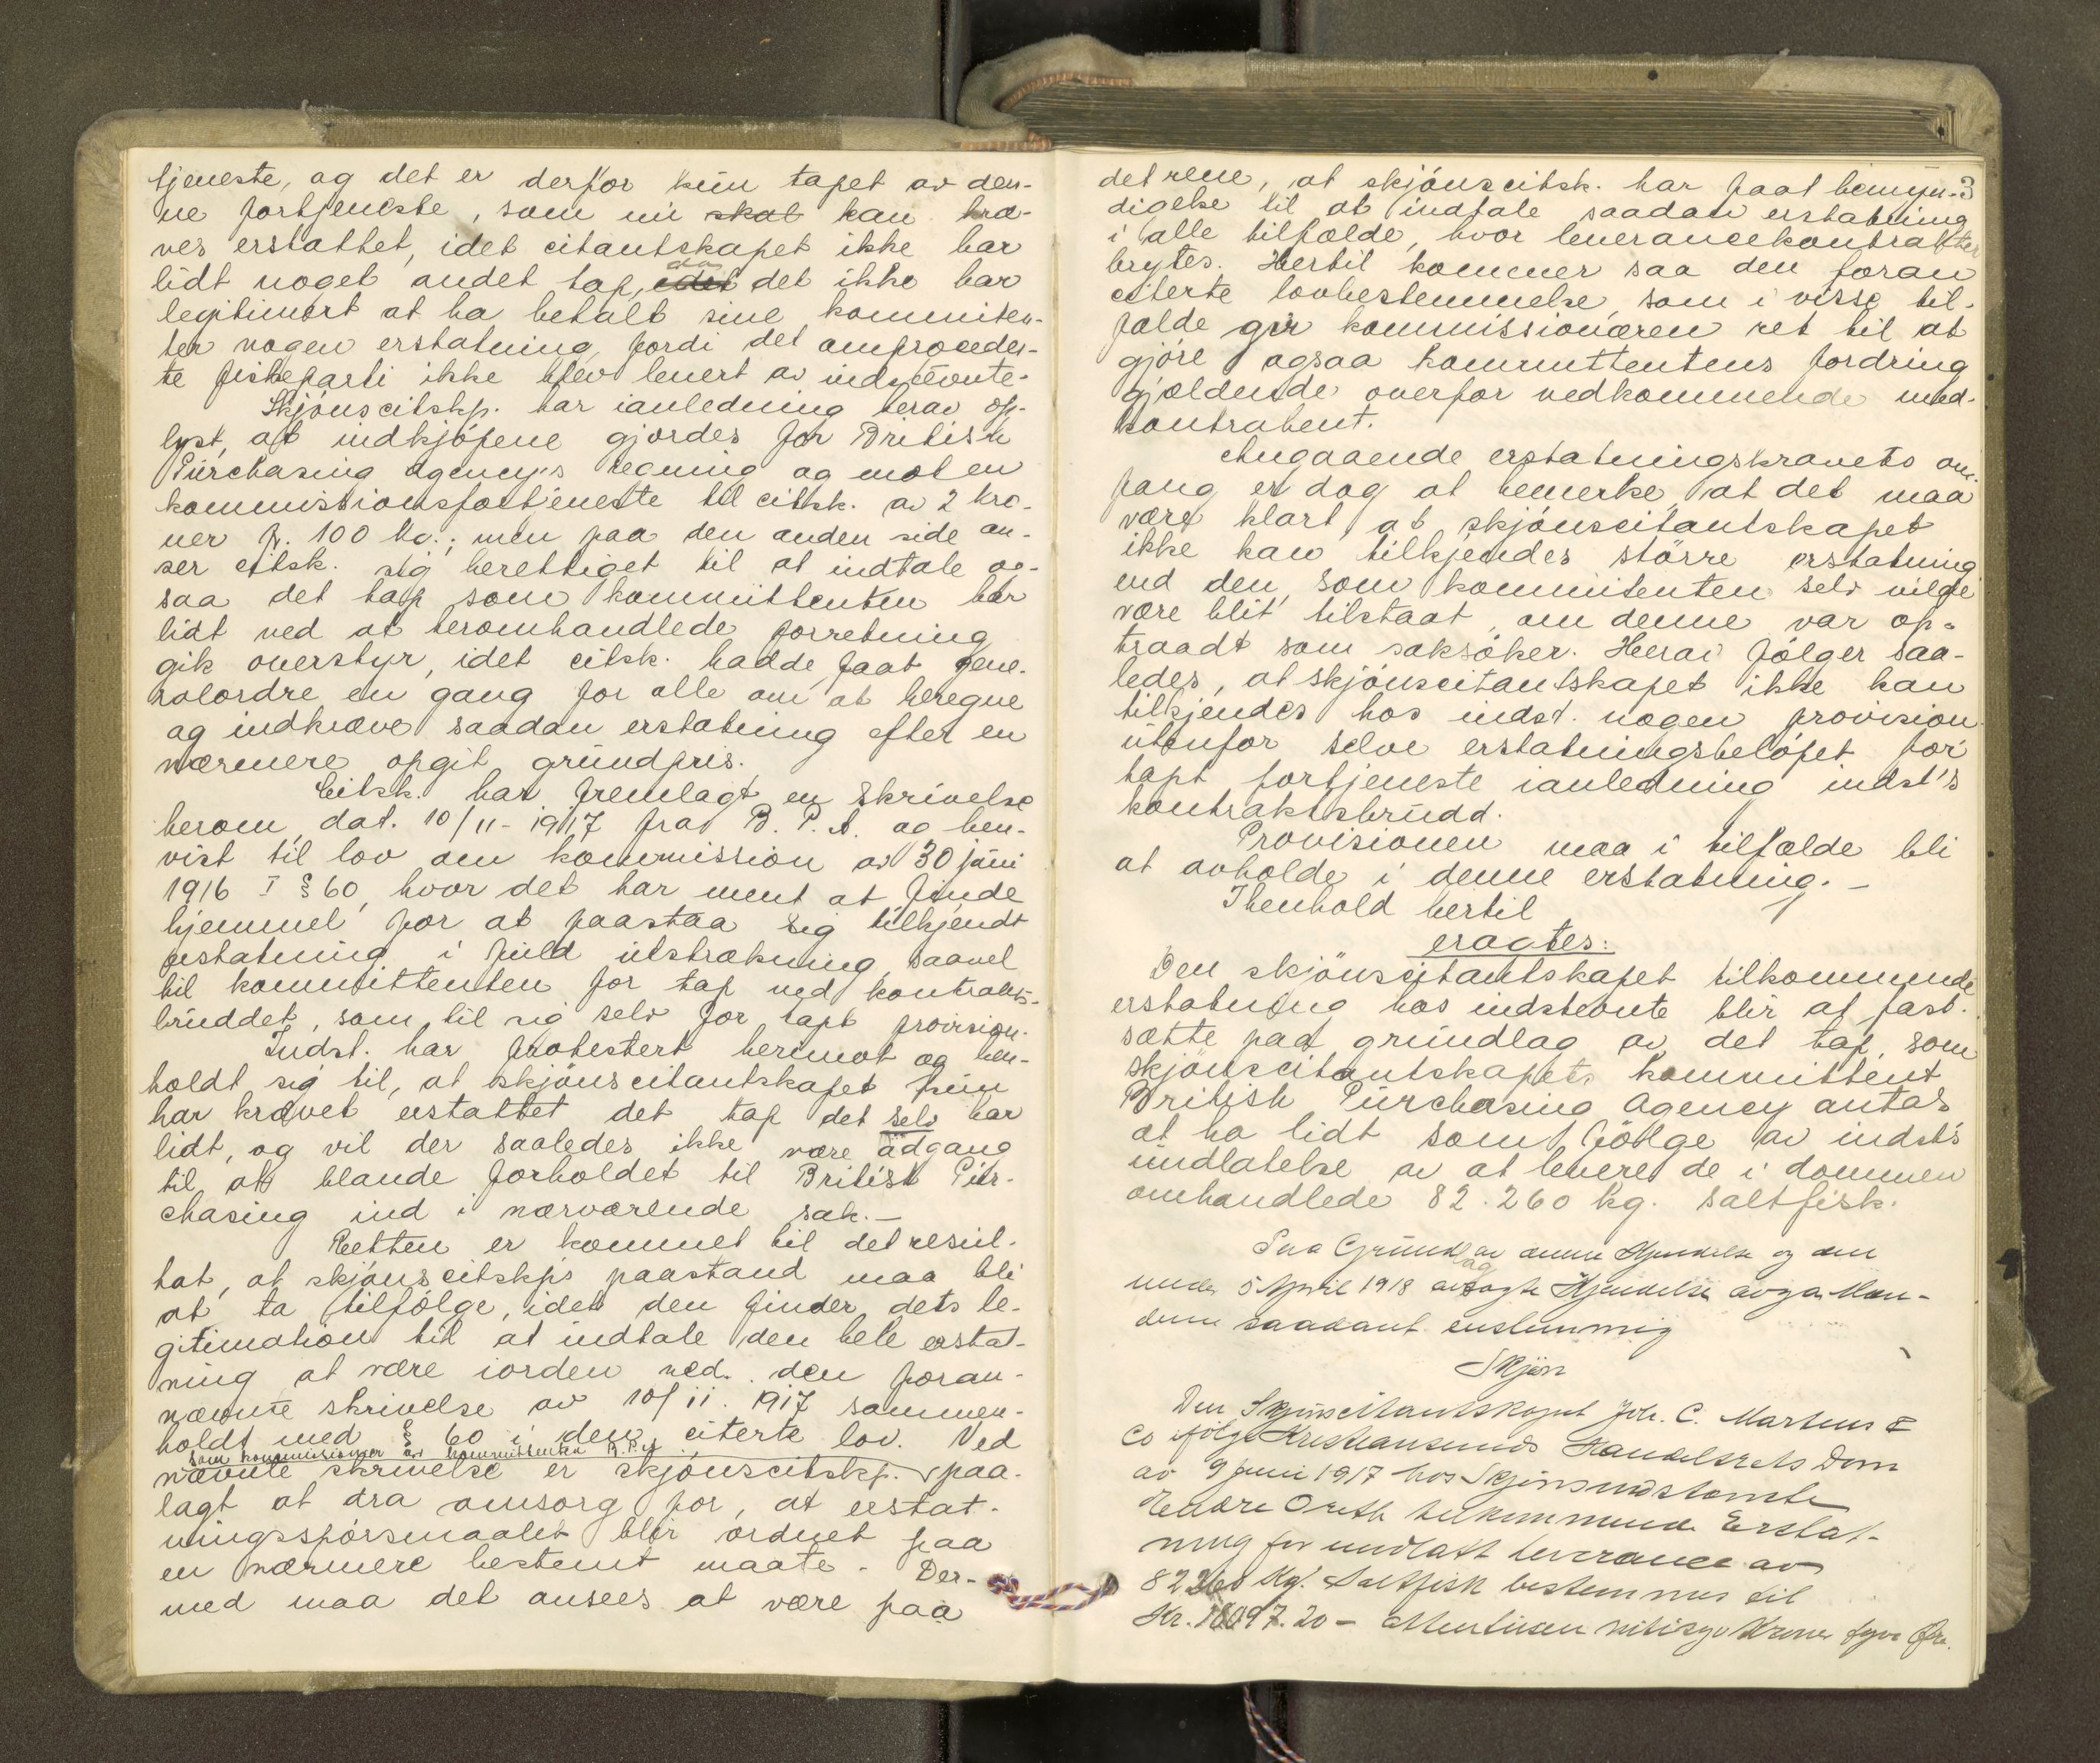 tjeneste, og det er derfor kun tapet av den-
ne fortjeneste, som nu skal kan kræ-
ves erstattet, idet citantskapet ikke har
lidt noget andet tap, idet da det ikke har
legitimert at ha betalt sine kommiten-
ter nogen erstatning, fordi det omproceder-
te fiskeparti ikke blev levert av indstevnte.
Skjönscitskp. har ianledning herav op-
lyst, at indkjöpene gjordes for British
Purchasing Agency's regning og mot en
kommissionsfortjeneste til citsk. av 2 kro-
ner pr. 100 ko.; men paa den anden side an-
ser citsk. sig berettiget til at indtale og-
saa det tap som kommittenten har
lidt ved at heromhandlede forretning
gik overstyr, idet citsk. hadde faat gene-
ralordre en gang for alle om at beregne
og indkræve saadan erstatning efter en
nærmere opgit grundpris.
Citsk. har fremlagt en skrivelse
herom, dat. 10/11-1917 fra B. P. A. og hen-
vist til lov om kommission av 30 juni
1916 I § 60, hvor det har ment at finde
hjemmel for at paastaa sig tilkjendt
erstatning i fuld utstrækning saavel
til kommittenten for tap ved kontrakts-
bruddet, som til sig selv for tapt provision.
Indst. har protestert herimot og hen-
holdt sig til, at skjönscitantskapet kun
har krævet erstattet det tap det selv har
lidt, og vil der saaledes ikke være adgang
til at blande forholdet til British Pur-
chasing ind i nærværende sak.-
Retten er kommet til det resul-
tat, at skjönscitskp's paastand maa bli
at ta tilfölge, idet den finder dets le-
gitimation til at indtale den hele erstat-
ning at være iorden ved den foran-
nævnte skrivelse av 10/11. 1917 sammen-
holdt med § 60 i den citerte lov. Ved
som kommissionær av kommittenten B. P. A.
nævnte skrivelse er skjönscitskp. paa-
lagt at dra omsorg for, at erstat-
ningsspörsmaalet blir ordnet paa
en nærmere bestemt maate. Der-
med maa det ansees at være paa
3
det rene, at skjönscitsk. har faat bemyn-
digelse til at indtale saadan erstatning
i alle tilfælde, hvor leverancekontrakter
brytes. Hertil kommer saa den foran
citerte lovbestemmelse, som i visse til-
fælde gir kommissionæren ret til at
gjöre ogsaa kommittentens fordring
gjældende overfor vedkommende med-
kontrahent.
Angaaende erstatningskravets om-
fang er dog at bemerke, at det maa
være klart at skjönscitantskapet
ikke kan tilkjendes större erstatning
end den, som kommitenten selv vilde
være blit tilstaat, om denne var op-
traadt som saksöker. Herav fölger saa-
ledes, at skjönscitantskapet ikke kan
tilkjendes hos indst. nogen provision
utenfor selve erstatningsbelöpet for
tapt fortjeneste ianledning indst's
kontraktsbrudd.
Provisionen maa i tilfælde bli
at avholde i denne erstatning.-
I henhold hertil
eragtes:
Den skjönscitantskapet tilkommende
erstatning hos indstevnte blir at fast-
sætte paa grundlag av det tap, som
skjönscitantskapets kommittent
British Purchasing Agency antas
at ha lidt som fölge av indst's
undlatelse av at levere de i dommen
omhandlede 82.260 kg. saltfisk.
Paa Grundlag av denne Kjendelse og den
under 5 April 1918 avsagte Kjendelse avga Mæn-
dene saadant enstemmig
Skjön
Den Skjönscitantskapet Joh. C. Martens &
Co ifölge Kristiansunds Handelsrets Dom
av 9 Juni 1917 hos Skjönsindstevnte
tilkommende Erstat-
ning for undlatt leverance av
82260 Kg. Saltfisk bestemmes til
Kr. 18097.20 - Attentusen nitisyv Kroner tyve Øre.